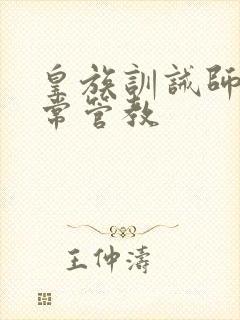 皇族訓誡師
常管教
王仲濤